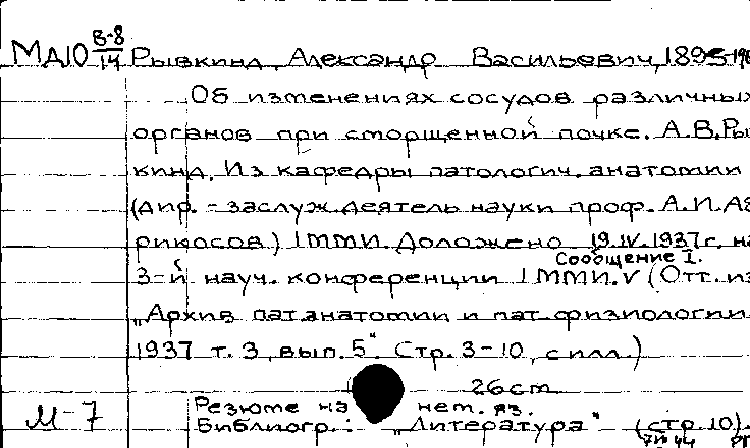 МД10 В-8/14 Рывкинд, Александр Васильевич, 1895-19
Об изменениях сосудов различных
органов при сморщенной почке. А.В.Ры
кинд. Из кафедры патологич. анатомии
(дир. - заслуж.деятель науки проф. А.И.Аб
рикосов) 1ММИ. Доложено 19.IV.1937г. на
Сообщение I.
3-й науч. конференции 1ММИ. V (Отт. из
"Архив пат.анатомии и пат.физиологии
1937 т. 3, вып. 5". Стр. 3-10, с илл.)
26 cm
М-7 Резюме на нем. яз.
Библиогр.: "Литература" (стр. 10)